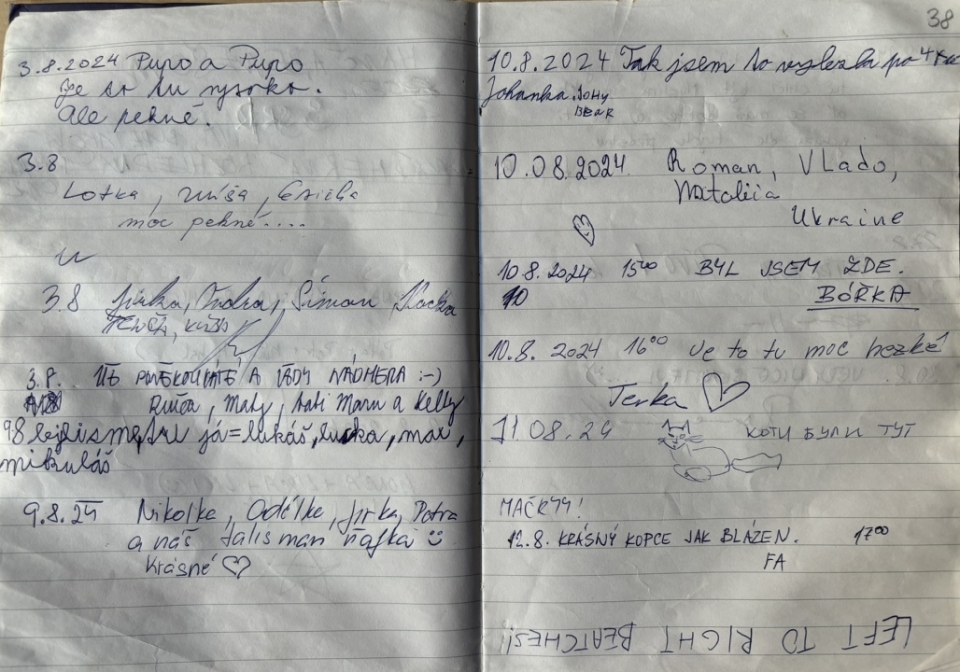 3.8.2024 Pupo a Pupo
Je to tu vysoko.
Ale pekné.
3.8
Lotka, Míša,
moc pekné....
3.8 Jirka, Ondra, Šimon,
3.8. UŽ A VŽDY NÁDHERA :-)
Ruža, Maty, tati Manu a Kelly
já=Lukáš, Lucka, max,
mikuláš
9.8.24 Nikolka, Adélka, Jirka, Petra
a náš talisman Ňafka
Krásné ♡
38
10.8.2024 Tak jsem to vylezla po 4
Johanka. JOHY
BEAR
10.08.2024 Roman, VLado,
Nataliia
Ukraine
10.8.2024 15⁰⁰ BYL JSEM ZDE.
BÓŘKA
10.8. 2024 16⁰⁰ Je to tu moc hezké
Terka ♡
11.08.24 КОТИ БУЛИ ТУТ
MAČKYY!
12.8. KRÁSNÝ KOPCE JAK BLÁZEN. 17⁰⁰
FA
LEFT TO RIGHT BEATCHES!